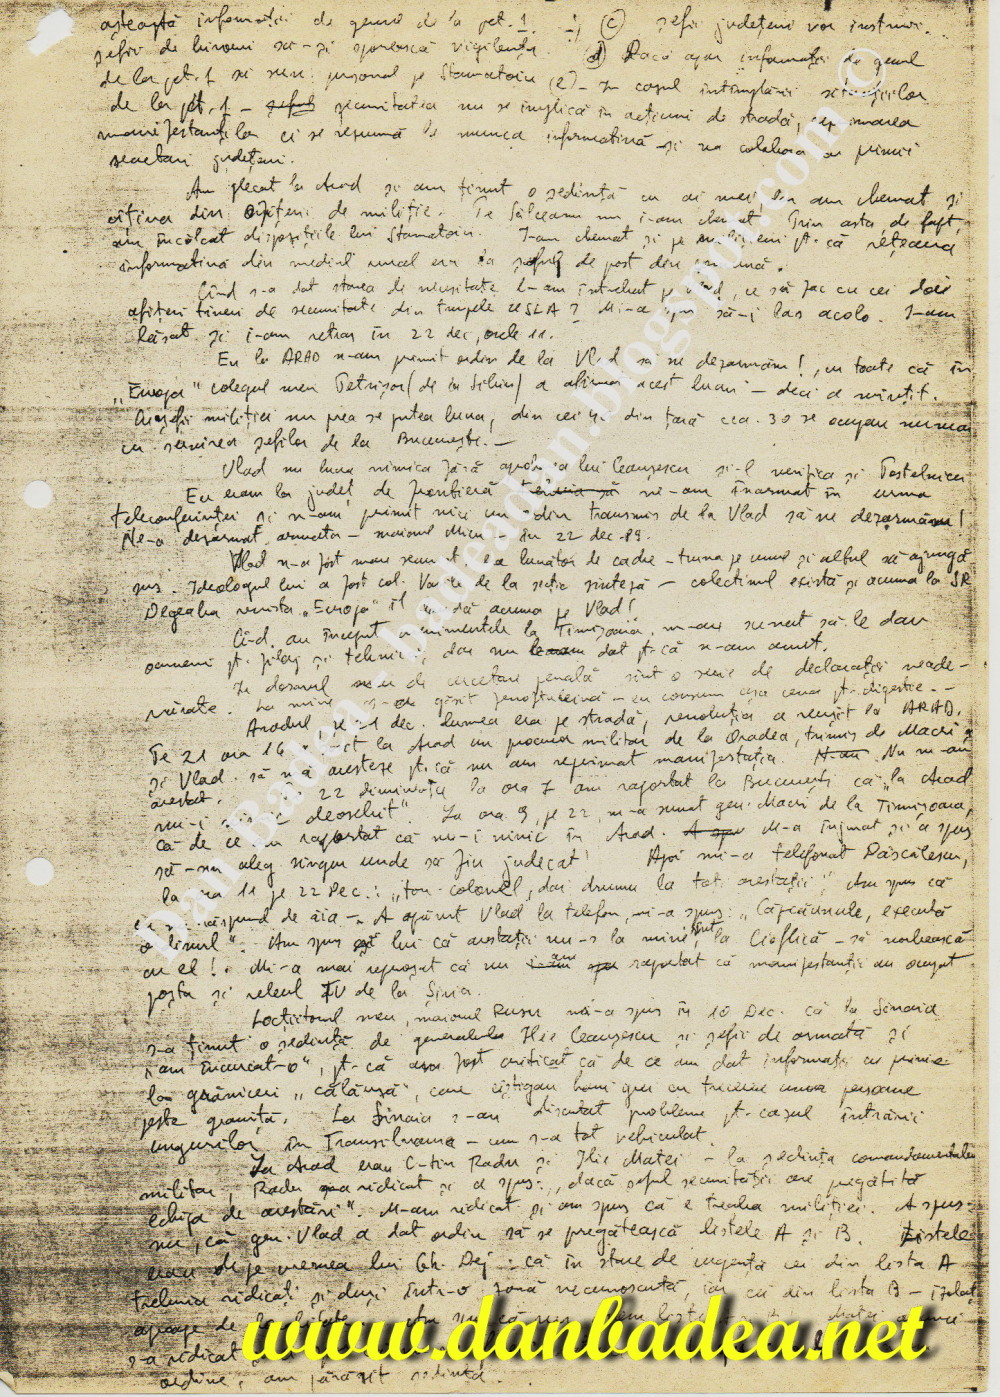 așteaptă informații de genul de la pct. 1. (c) șefii județeni vor instrui
șefii de birouri să-și sporească vigilența (d) Dacă apar informații de genul
de la pct. 1 să sun personal pe Stamatoiu (e) - în cazul întîmplării situațiilor
de la pct. 1 - șeful securitatea nu se implică în acțiuni de stradă, reprimarea
manifestanților ci se rezumă la munca informativă și va colabora cu primii
secretari județeni.
Am plecat la Arad și am ținut o ședință cu ai mei, am chemat și
cîțiva din ofițeri de miliție. Pe Sălceanu nu i-am chemat. Prin asta, de fapt,
am încălcat dispozițiile lui Stamatoiu. I-am chemat și pe pt. că rețeaua
informativă din mediul rural era la șeful de post din comună.
Cînd s-a dat starea de necesitate l-am întrebat pe Vlad, ce să fac cu cei doi
ofițeri tineri de securitate din trupele USLA? Mi-a spus să-i las acolo. I-am
lăsat și i-am retras în 22 dec, orele 11.
Eu la ARAD n-am primit ordin de la Vlad să ne dezarmăm!, cu toate că în
„Europa" colegul meu Petrișor (de la Sibiu) a afirmat acest lucru - deci a mințit.
șefii miliției nu prea se putea lucra, din cei 41 din țară cca. 30 se ocupau numai
cu servirea șefilor de la București. -
Vlad nu lucra nimica fără aprobarea lui Ceaușescu și-l verifica și Postelnicu
Eu eram la județ de frontieră trebuia să ne-am înarmat în urma
teleconferinței și n-am primit nici un ordin transmis de la Vlad să ne dezarmăm!
Ne-a dezarmat armata - maiorul - în 22 dec. 89.
Vlad n-a fost mare securist, era lucrător de cadre - turna pe unul și altul să ajungă
sus. Ideologul lui a fost col. de la secția sinteză - colectivul există și acuma la SRI
Degeaba revista „Europa" îl acuma pe Vlad!
Cînd au început evenimentele la Timișoara, m-au sunat să le dau
oameni pt. filaj și tehnică, dar nu le-am dat pt. că n-am avut.
În dosarul meu de cercetare penală sînt o serie de declarații neade-
vărate. La mine s-a găsit - eu consum așa ceva pt. digestie. -
Aradul, pe 21 dec. lumea era pe stradă, revoluția a reușit la ARAD.
Pe 21 ora 16 la Arad un procuror militar de la Oradea, trimis de Macri
și Vlad să mă aresteze pt. că nu am reprimat manifestația. N-au Nu m-au
arestat. 22 dimineața la ora 7 am raportat la București că „la Arad
nu-i nimic deosebit". La ora 9, pe 22, m-a sunat gen. Macri de la Timișoara,
că de ce am raportat că nu-i nimic în Arad. A spus M-a înjurat și a spus
să-mi aleg singur unde să fiu judecat! Apoi mi-a telefonat Dăscălescu,
la ora 11 pe 22 Dec.: „tov. colonel, dai drumu la toți arestații", Am spus că
eu nu răspund de ăia - A apărut Vlad la telefon, mi-a spus: „Căpcăunule, execută
ordinul". Am spus și lui că arestații nu-s la mine, sînt la Cioflică - să vorbească
cu el!. Mi-a mai reproșat că nu i-am raportat că manifestanții au ocupat
poșta și releul TV de la Șiria.
Locțiitorul meu, maiorul Rusu mi-a spus în 10 Dec. că la Sinaia
s-a ținut o ședință de generalul Ilie Ceaușescu și șefii de armată și
„am încurcat-o", pt. că am fost criticat că de ce am dat informații cu privire
la grăniceri „călăuză", care cîștigau bani grei cu trecerea unor persoane
peste graniță. La Sinaia s-au discutat probleme pt. cazul intrării
ungurilor în Transilvania - cum s-a tot vehiculat.
La Arad erau C-tin Radu și Ilie Matei - la ședința comandamentului
militar, Radu s-a ridicat și a spus: „dacă șeful securității are pregătită
echipa de arestări". M-am ridicat și am spus că e treaba miliției. A spus
nu, că gen. Vlad a dat ordin să se pregătească listele A și B. Listele
erau de pe vremea lui Gh. Dej: că în stare de urgență cei din lista A
trebuia ridicați și duși într-o zonă necunoscută, iar cei din lista B - izolați
aproape de localitate. Am spus că Matei atunci
s-a ridicat
ordine, am părăsit ședința.
Dan Badea - badeadan.blogspot.com ©
www.danbadea.net